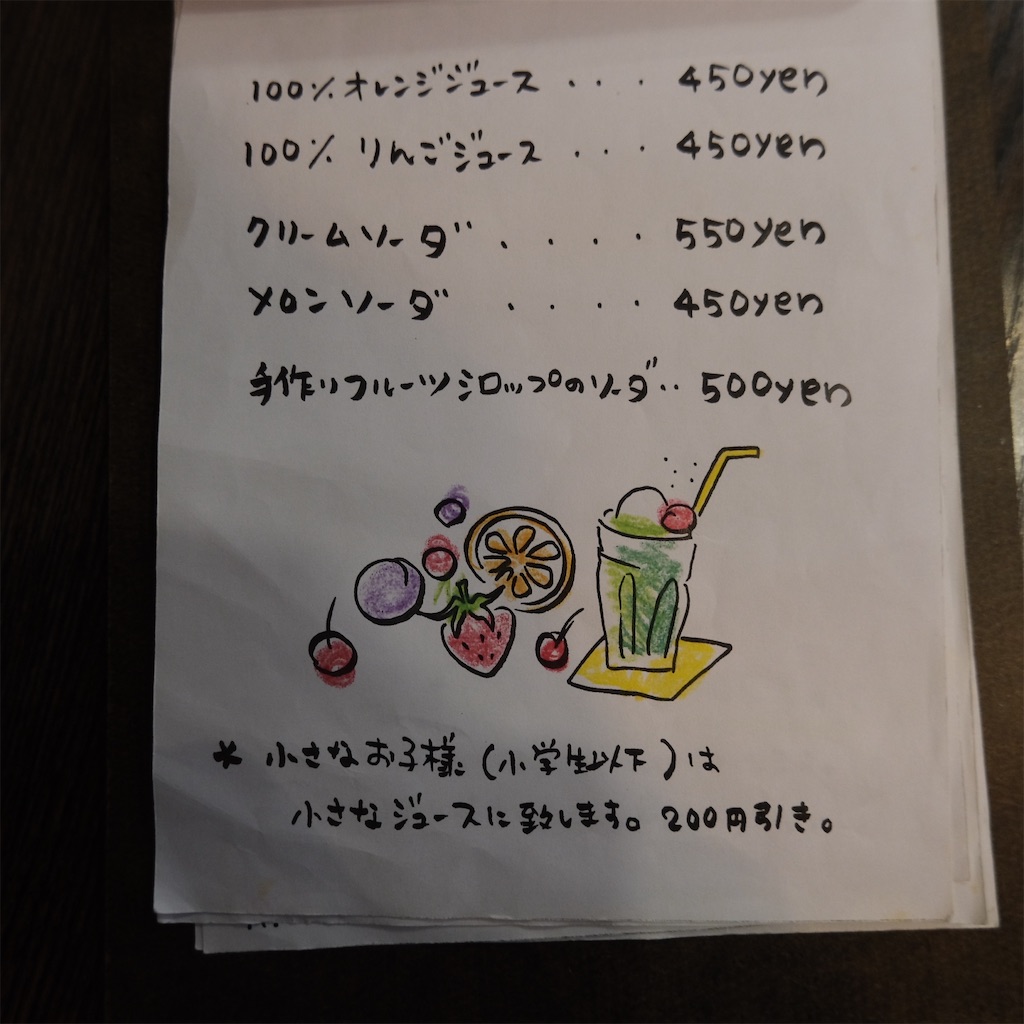 100% オレンジジュース . . . 450yen
100% りんごジュース . . . 450yen
クリームソーダ . . . . 550yen
メロンソーダ . . . . 450yen
手作りフルーツシロップのソーダ . . 500yen
* 小さなお子様 (小学生以下) は
小さなジュースに致します。200円引き。